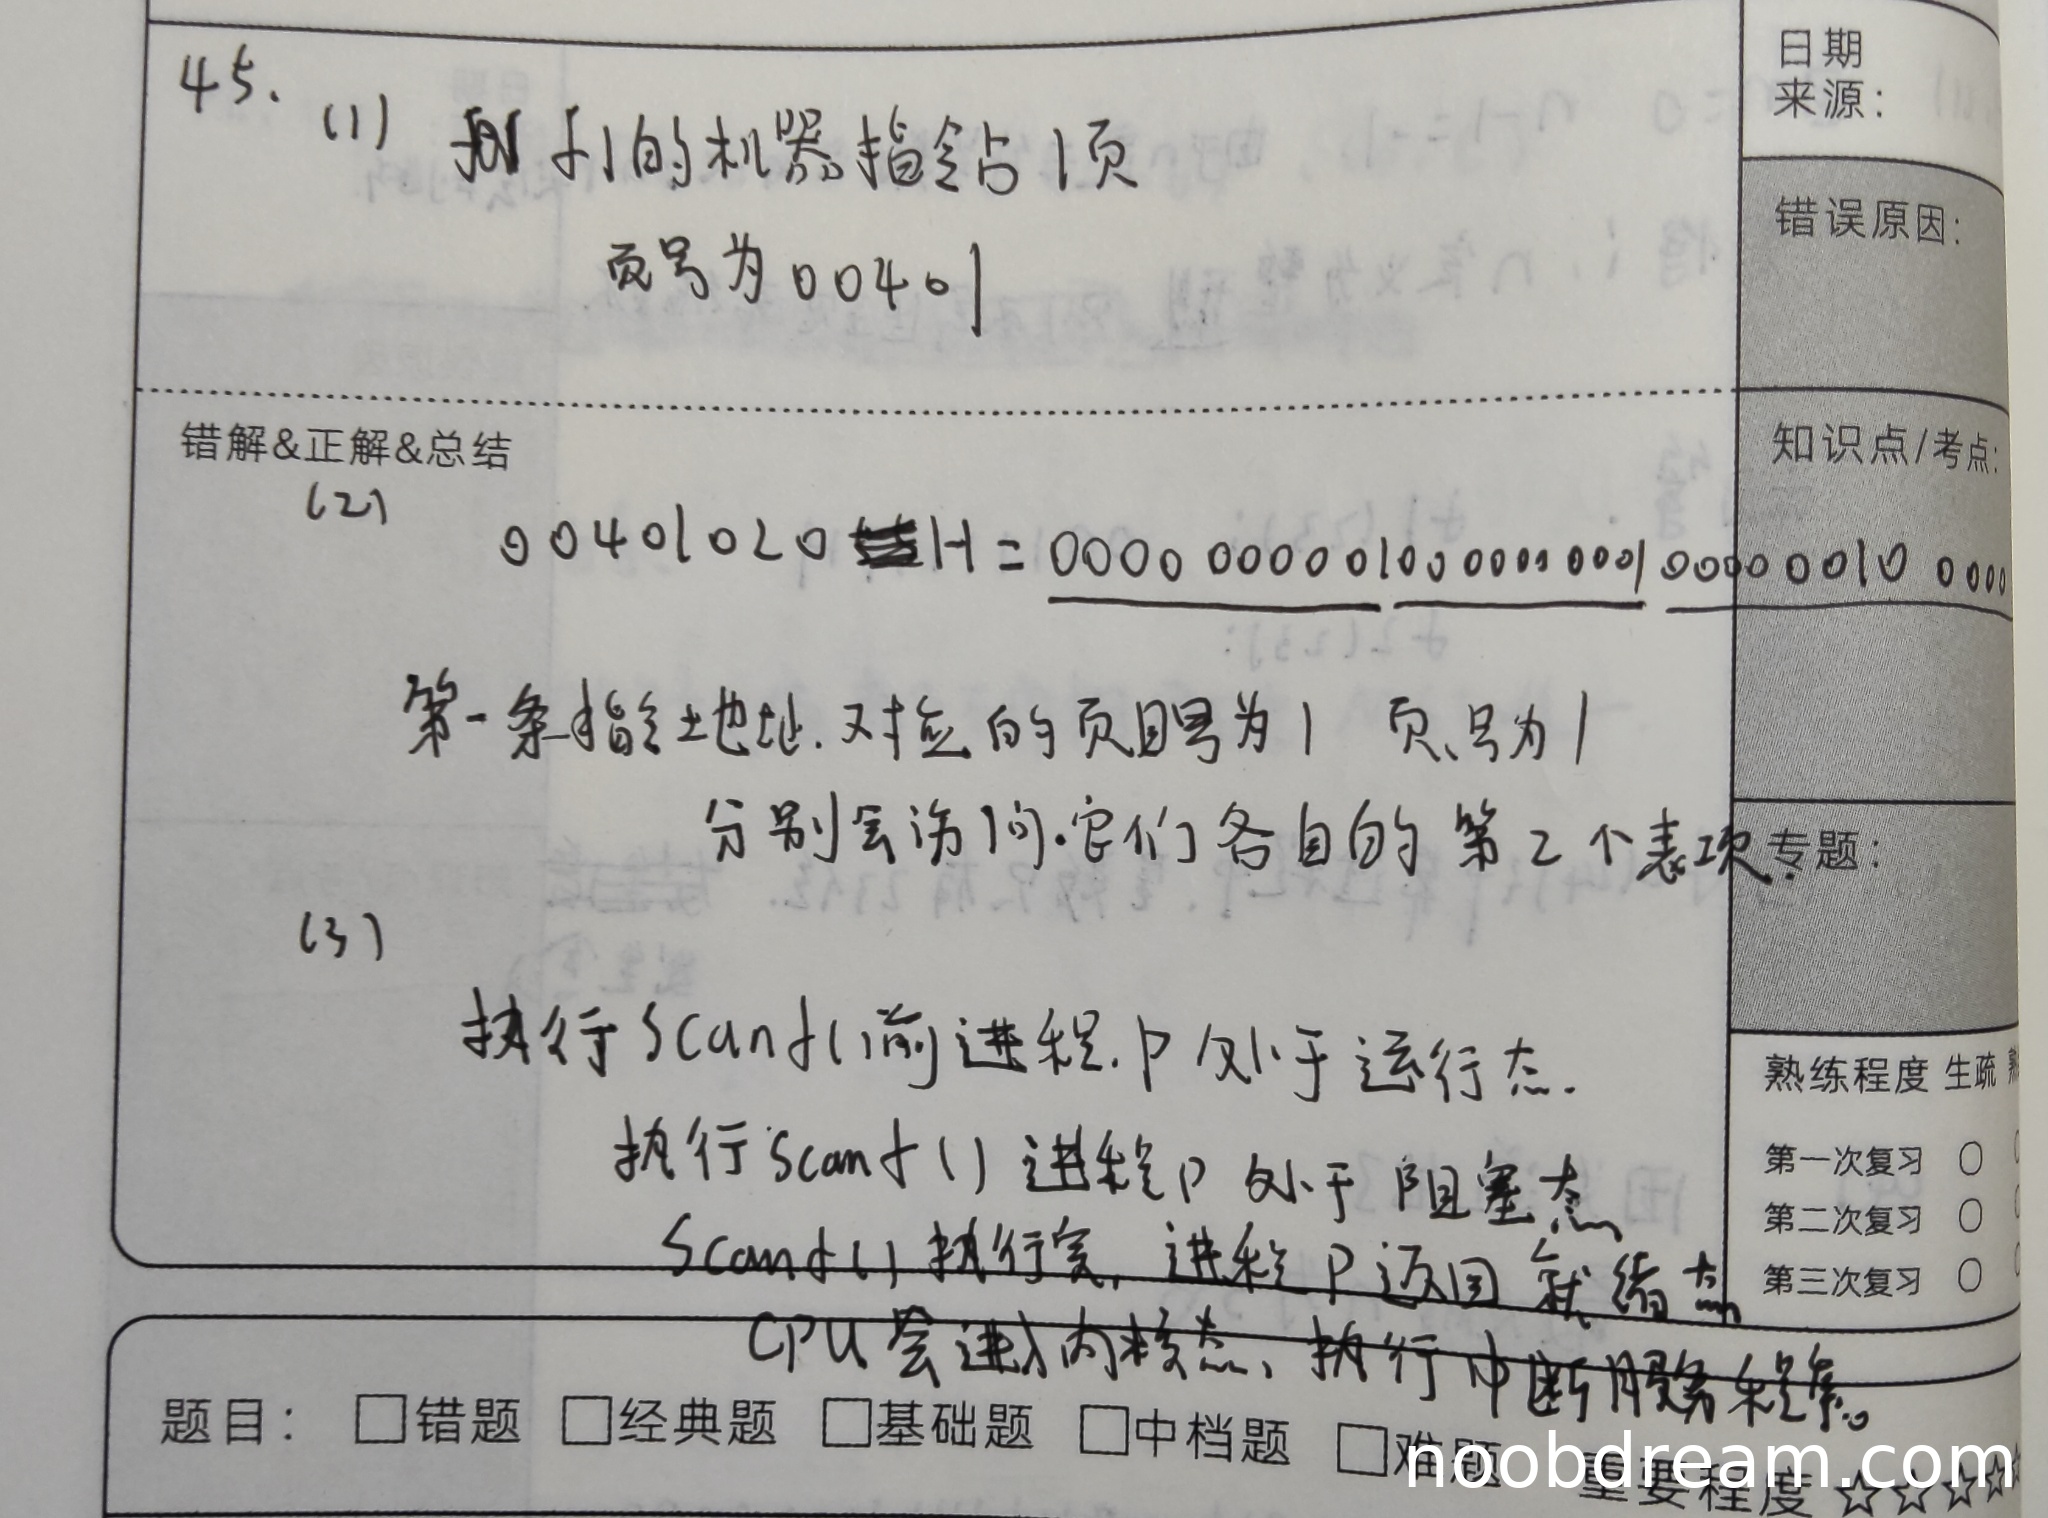 45.
(1) 函数f1的机器指令占1页
页号为00401
日期
来源：
错误原因：
错解&正解&总结
知识点/考点：
(2)
00401020 H = 0000 0000 0100 0000 0001 0000 0010 0000
第一条指令地址.对应的页目号为1 页号为1
分别会访问.它们各自的第2个表项.
专题：
(3)
执行scanf()前进程.P处于运行态.
执行scanf()进程P处于阻塞态
scanf()执行完,进程P返回就绪态
CPU会进入内核态、执行中断服务程序。
熟练程度 生疏
第一次复习
第二次复习
第三次复习
题目： 错题 经典题 基础题 中档题 难题 重要程度
noobdream.com